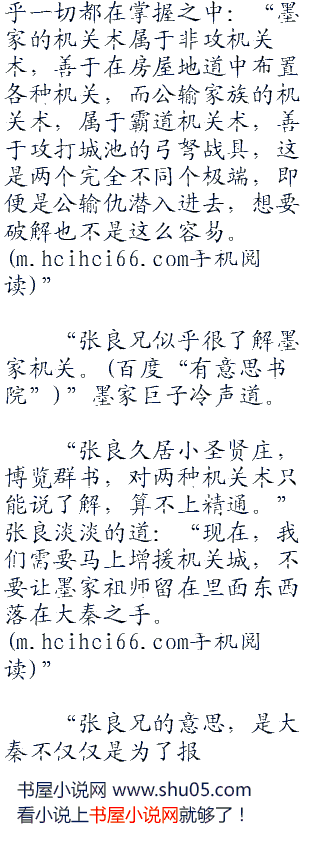 乎一切都在掌握之中：“墨
家的机关术属于非攻机关
术，善于在房屋地道中布置
各种机关，而公输家族的机
关术，属于霸道机关术，善
于攻打城池的弓弩战具，这
是两个完全不同个极端，即
便是公输仇潜入进去，想要
破解也不是这么容易。
(m.hcihci66.com手机阅
读)”
“张良兄似乎很了解墨
家机关。(百度“有意思书
院”)”墨家巨子冷声道。
“张良久居小圣贤庄，
博览群书，对两种机关术只
能说了解，算不上精通。”
张良淡淡的道：“现在，我
们需要马上增援机关城，不
要让墨家祖师留在里面东西
落在大秦之手。
(m.hcihci66.com手机阅
读)”
“张良兄的意思，是大
秦不仅仅是为了报
书屋小说网 www.shu05.com
看小说上书屋小说网就够了！